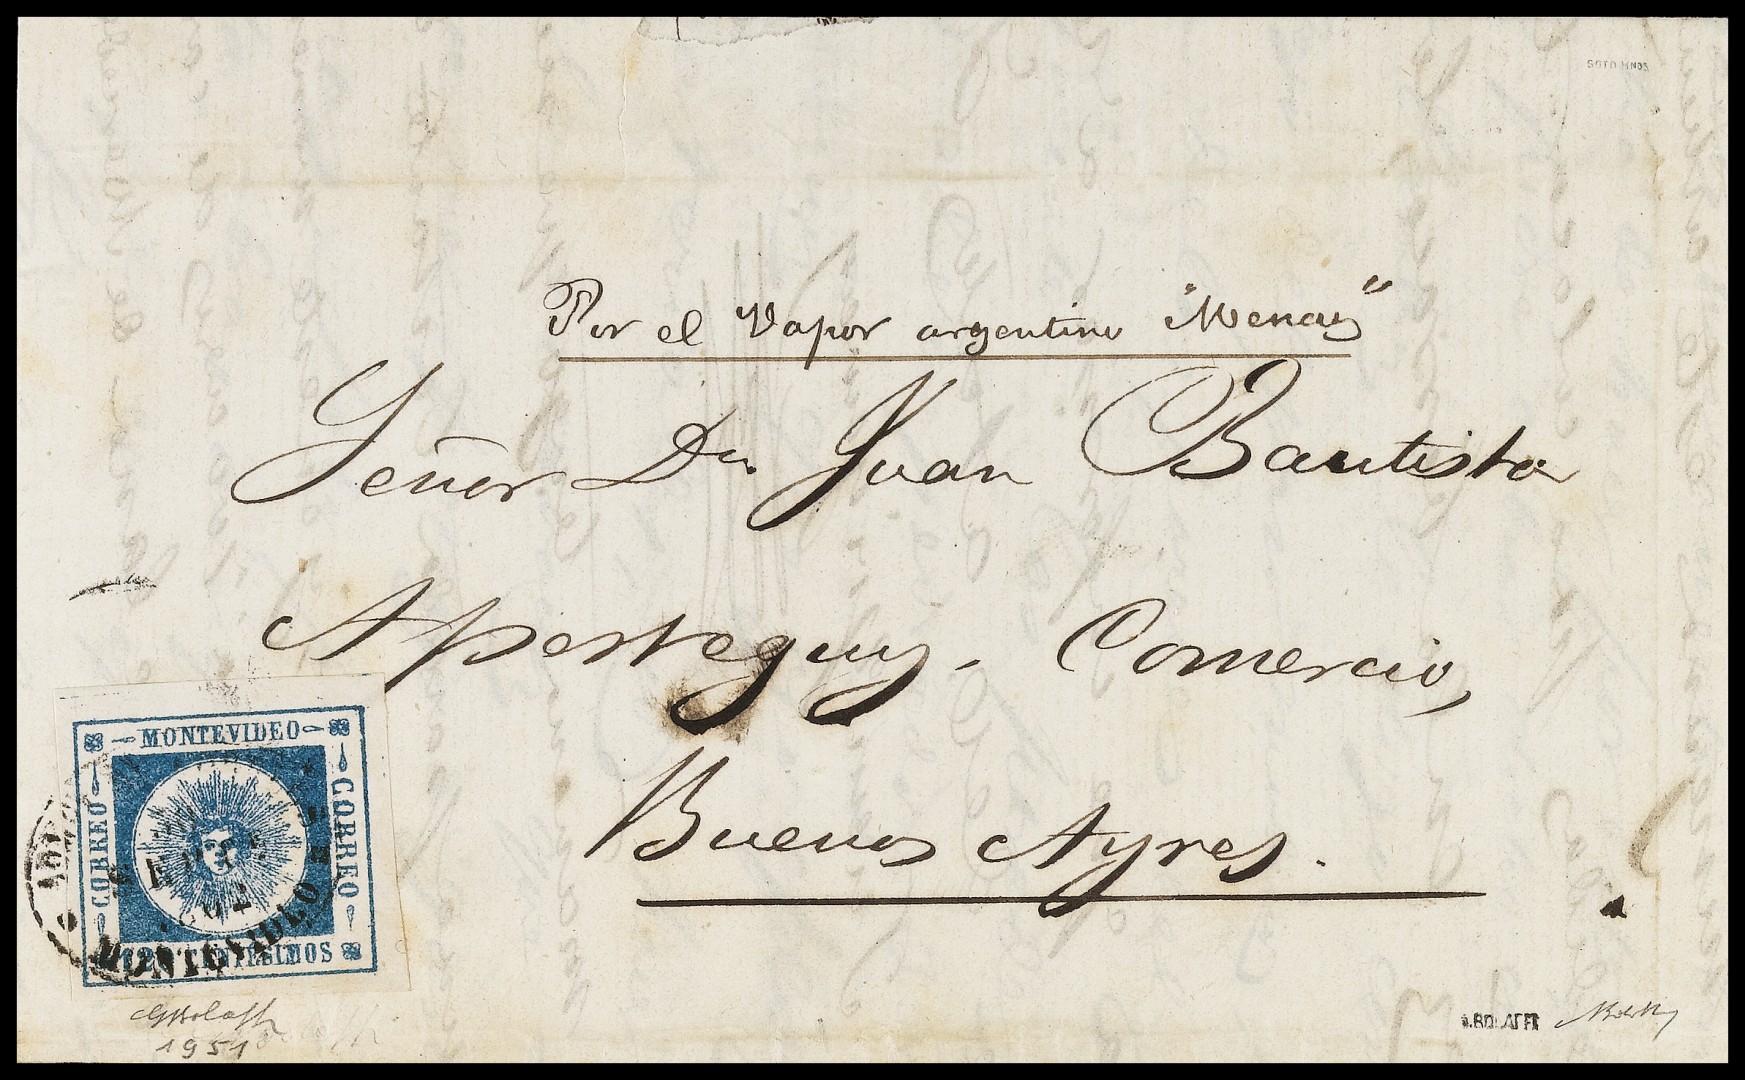 SOTO HNOS
Por el Vapor argentino "Menay"
Señor Dn Juan Bautista
Apesteguy. Comercio,
Buenos Ayres.
MONTEVIDEO
CORREO
CORREO
CENTESIMOS
MONTEVIDEO
1951
A.BOLAFFI